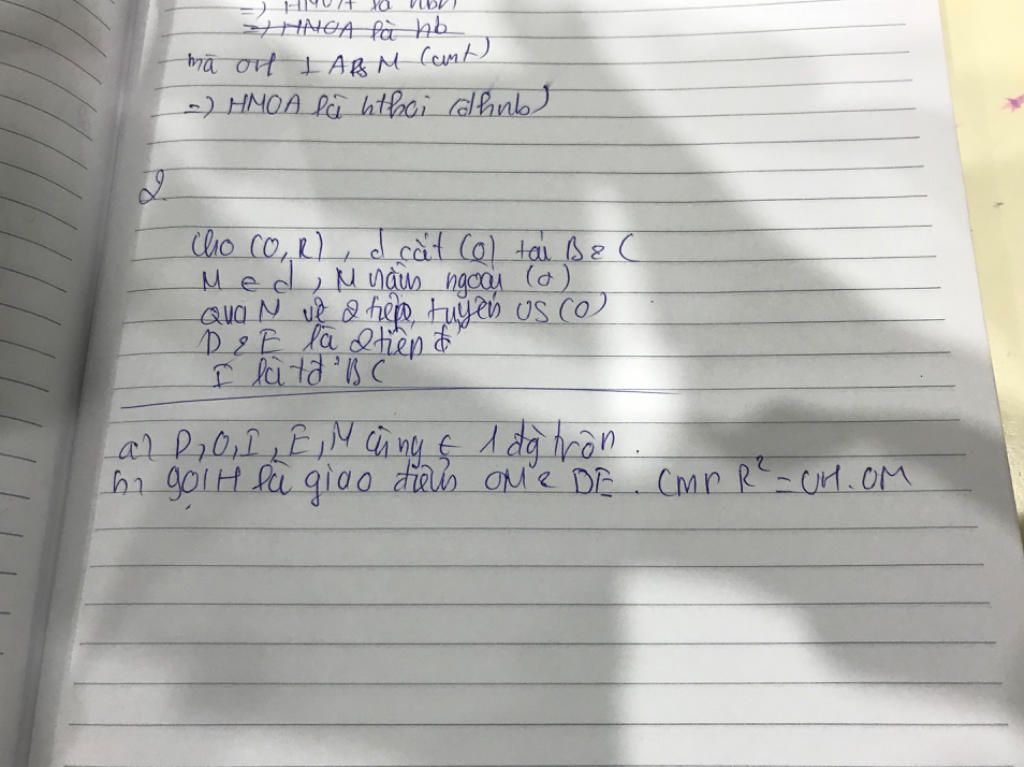 =) HMOA là hbh
=) HMOA là hb
mà OH ⊥ AM (cmt)
=) HMOA là hthoi (dhnb)
2.
Cho (O,R), d cắt (O) tại B & C
M ∈ d, M nằm ngoài (O)
qua M vẽ 2 tiếp tuyến vs (O)
D & E là 2 tiếp đ'
I là tđ' BC
a) D,O,I,E,M cùng ∈ 1 đg tròn.
b) gọi H là giao điểm OM & DE. Cmr R² = OH.OM